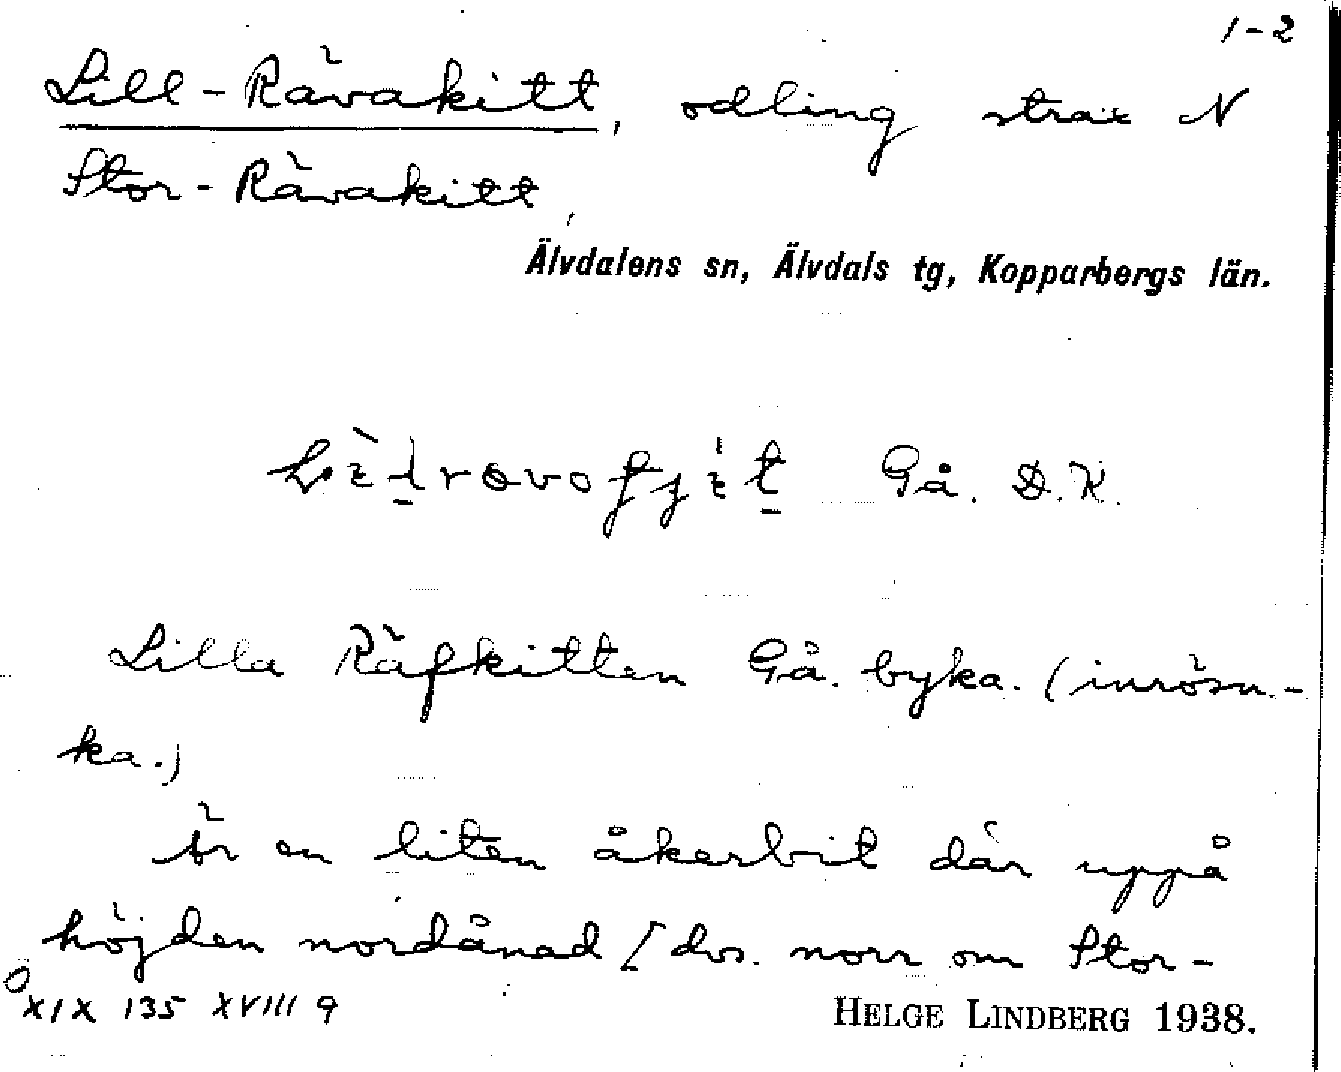 1-2
Lill-Rävakitt, odling strax N
Stor-Rävakitt,
Älvdalens sn, Älvdals tg, Kopparbergs län.
Gå. D.K.
Lilla Räfkitten Gå. byka. (inrösn.-
ka.)
Är en liten åkerbit där uppå
höjden nordånad [dvs. norr om Stor-
XIX 135 XVIII 9
HELGE LINDBERG 1938.